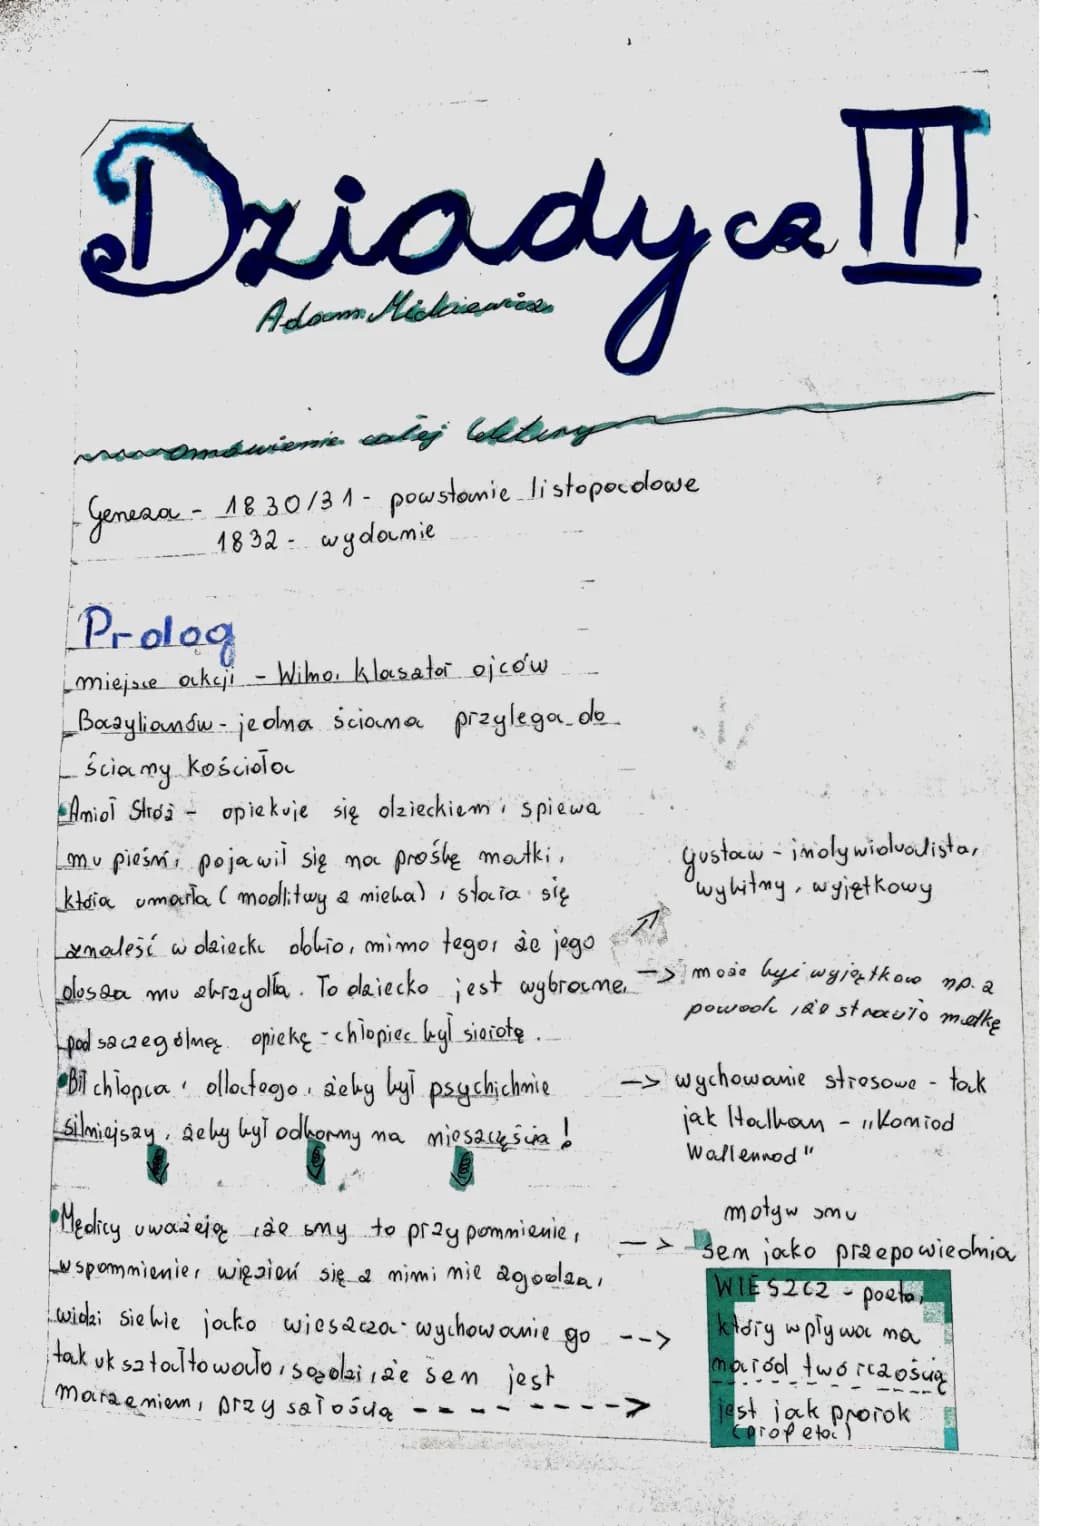 Dziady cz III
Adam Mickiewicz
omówienie całej lektury
Geneza - 1830/31 - powstanie listopadowe
1832 - wydanie
Prolog
miejsce akcji - Wilno, klasztor ojców
Bazylianów - jedna ściana przylega do
ściany kościoła
Anioł Stróż - opiekuje się dzieckiem, śpiewa
mu pieśni, pojawił się na prośbę matki,
która umarła (modlitwy z nieba), stara się
znaleść w dziecku dobro, mimo tego, że jego
dusza mu zbrzydła. To dziecko jest wybrane,
pod szczególną opieką - chłopiec był sierotą.
Bił chłopca, dlatego, żeby był psychichnie
silniejszy, żeby był odporny na nieszczęścia!
Mędlicy uważają, że sny to przypomnienie,
wspomnienie, więzień się z nimi nie zgadza,
widzi siebie jako wieszcza - wychowanie go
tak ukształtowało, sądzi, że sen jest
marzeniem, przyszłością
Gustaw - indywidualista,
wybitny, wyjątkowy
może być wyjątkowo np. z
powodu, że straciło matkę
wychowanie stresowe - tak
jak Halban - "Konrad
Wallenrod"
motyw snu
sen jako przepowiednia
WIESZCZ - poeta,
który wpływa na
naród twórczością
jest jak prorok
(profeta)